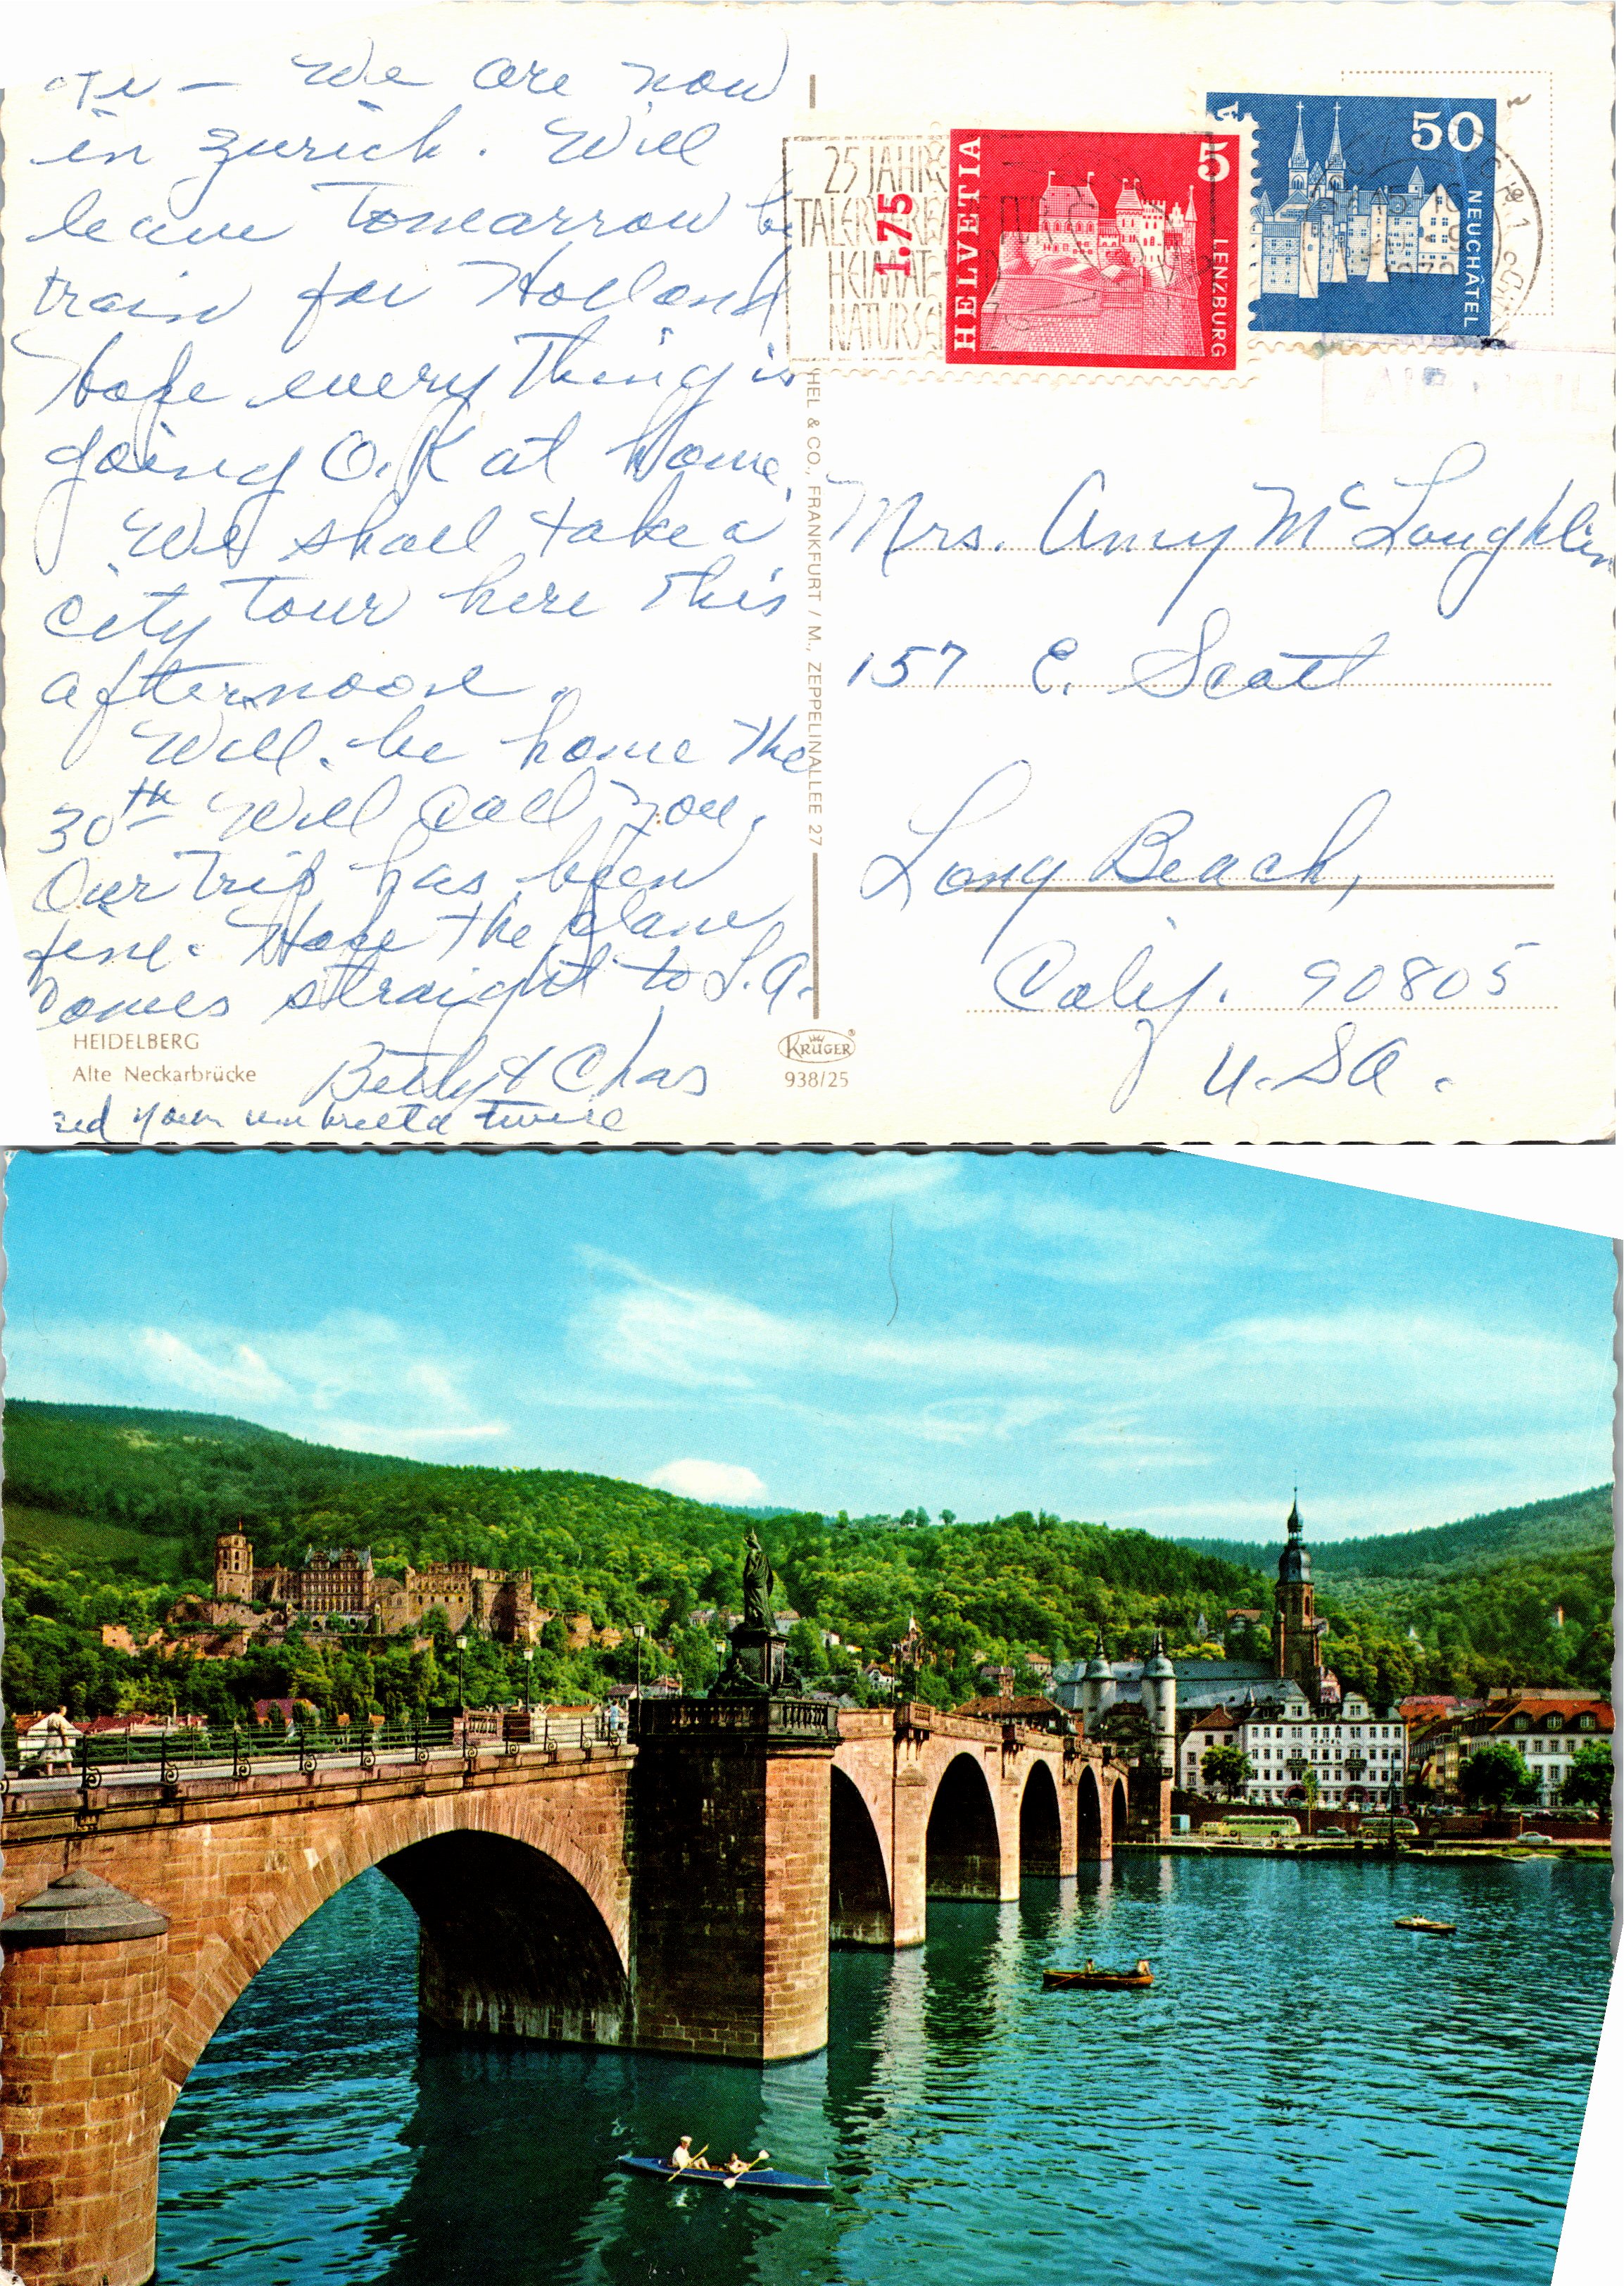 — We are now
in Zurich. Will
leave tomarrow by
train for Holland
Hope every thing is
going O.K at home.
We shall take a
city tour here this
afternoon.
Will be home the
30th Will call you.
Our trip has been
fine. Hope the plane
comes straight to L.A.
Betty & Chas
your umbrella twice
HEIDELBERG
Alte Neckarbrücke
HEL & CO., FRANKFURT / M., ZEPPELINALLEE 27
KRÜGER
938/25
25 JAHRE
TALER
HEIMAT
NATURSCH
1.75
HELVETIA
5
LENZBURG
A
50
NEUCHÂTEL
AIR MAIL
Mrs. Amy McLoughlin
157 E. Scott
Long Beach,
Calif. 90805
U.S.A.
HOTEL